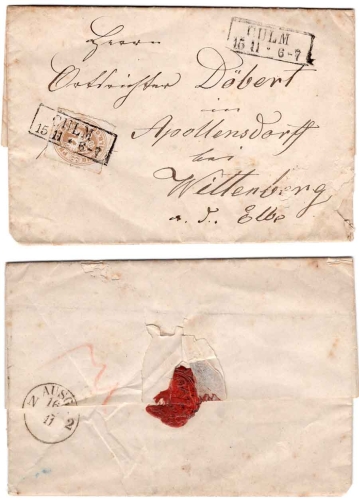 CULM
15 11 * 6-7
Herrn
Ortsrichter Döbert
CULM
15 11 * 6-7
in
Apollensdorff
bei
Wittenberg
a. d. Elbe
AUSG
N 16 2
11